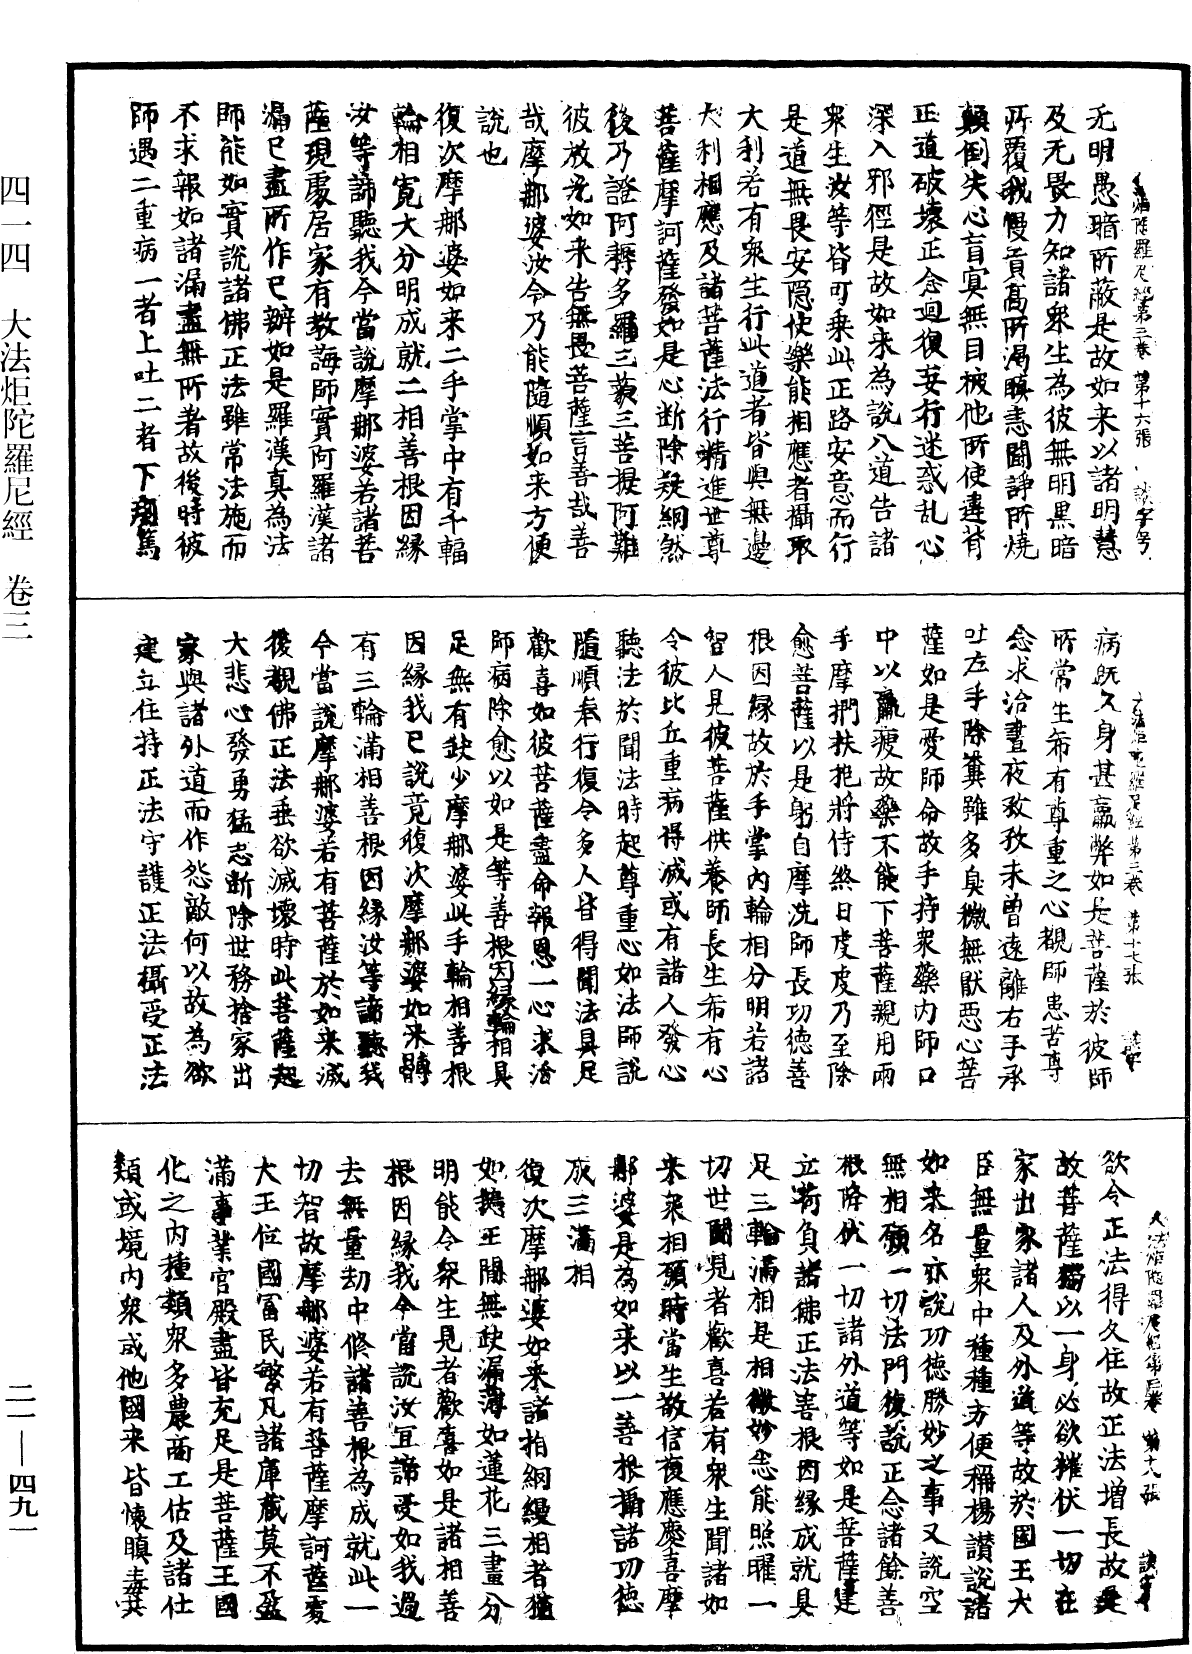 大法炬陀羅尼經第三卷 第十六張 談字号
无明愚暗所蔽是故如来以諸明慧
及无畏力知諸衆生為彼無明黒暗
所覆我慢貢髙所渴瞋恚鬪諍所燒
顛倒失心盲㝠無目被他所使違背
正道破壊正念迴復妄行迷惑乱心
深入邪徑是故如来為說八道告諸
衆生汝等皆可乗此正路安意而行
是道無畏安隠使樂能相應者攝取
大利若有衆生行此道者皆與無邊
大利相應及諸菩薩法行精進世尊
菩薩摩訶薩發如是心断除疑網然
後乃證阿耨多羅三藐三菩提阿難
彼放光如来告無畏菩薩言善哉善
哉摩那婆汝今乃能隨順如来方便
說也
復次摩那婆如来二手掌中有千輻
輪相寛大分明成就二相善根因縁
汝等諦聽我今當說摩那婆若諸菩
薩現處居家有教誨師實阿羅漢諸
漏已盡所作已辦如是羅漢真為法
師能如實說諸佛正法雖常法施而
不求報如諸漏盡無所著故後時彼
師遇二重病一者上吐二者下痢篤
大法炬陀羅尼經第三卷 第十七張 談字
病既久身甚羸弊如是菩薩於彼師
所常生希有尊重之心覩師患苦尊
念求治晝夜孜孜未曽遠離右手承
吐左手除糞雖多臭穢無厭悪心菩
薩如是愛師命故手持衆藥内師口
中以羸瘦故藥不能下菩薩親用兩
手摩捫扶抱將侍終日度度乃至除
愈菩薩以是躬自摩洗師長功徳善
根因縁故於手掌内輪相分明若諸
智人見彼菩薩供養師長生希有心
令彼比丘重病得滅或有諸人發心
聽法於聞法時起尊重心如法師說
隨順奉行復令多人皆得聞法具足
歡喜如彼菩薩盡命報恩一心求治
師病除愈以如是等善根因縁輪相具
足無有缺少摩那婆此手輪相善根
因縁我已說竟復次摩那婆如来髆
有三輪滿相善根因縁汝等諦聽我
今當說摩那婆若有菩薩於如来滅
後覩佛正法垂欲滅壊時此菩薩起
大悲心發勇猛志断除世務捨家出
家與諸外道而作怨敵何以故為欲
建立住持正法守護正法攝受正法
大法炬陀羅尼經第三卷 第十八張 談字
欲令正法得久住故正法增長故是
故菩薩獨以一身必欲摧伏一切在
家出家諸人及外道等故於國王大
臣無量衆中種種方便稱揚讃說諸
如来名亦說功徳勝妙之事又說空
無相願一切法門復說正念諸餘善
根降伏一切諸外道等如是菩薩建
立荷負諸佛正法善根因縁成就具
足三輪滿相是相微妙悉能照曜一
切世間見者歡喜若有衆生聞諸如
来衆相願時當生敬信復應慶喜摩
那婆是為如来以一善根攝諸功徳
成三滿相
復次摩那婆如来諸指網縵相者猶
如鵝王間無缺漏薄如蓮花三畫分
明能令衆生見者歡喜如是諸相善
根因縁我今當說汝宜諦受如我過
去無量劫中修諸善根為成就此一
切智故摩那婆若有菩薩摩訶薩處
大王位國冨民繁凡諸庫藏莫不盈
滿事業官殿盡皆充足是菩薩王國
化之内種類衆多農商工估及諸仕
類或境内衆或他國来皆懐瞋毒共
四一四 大法炬陀羅尼經 卷三
二一—四九一